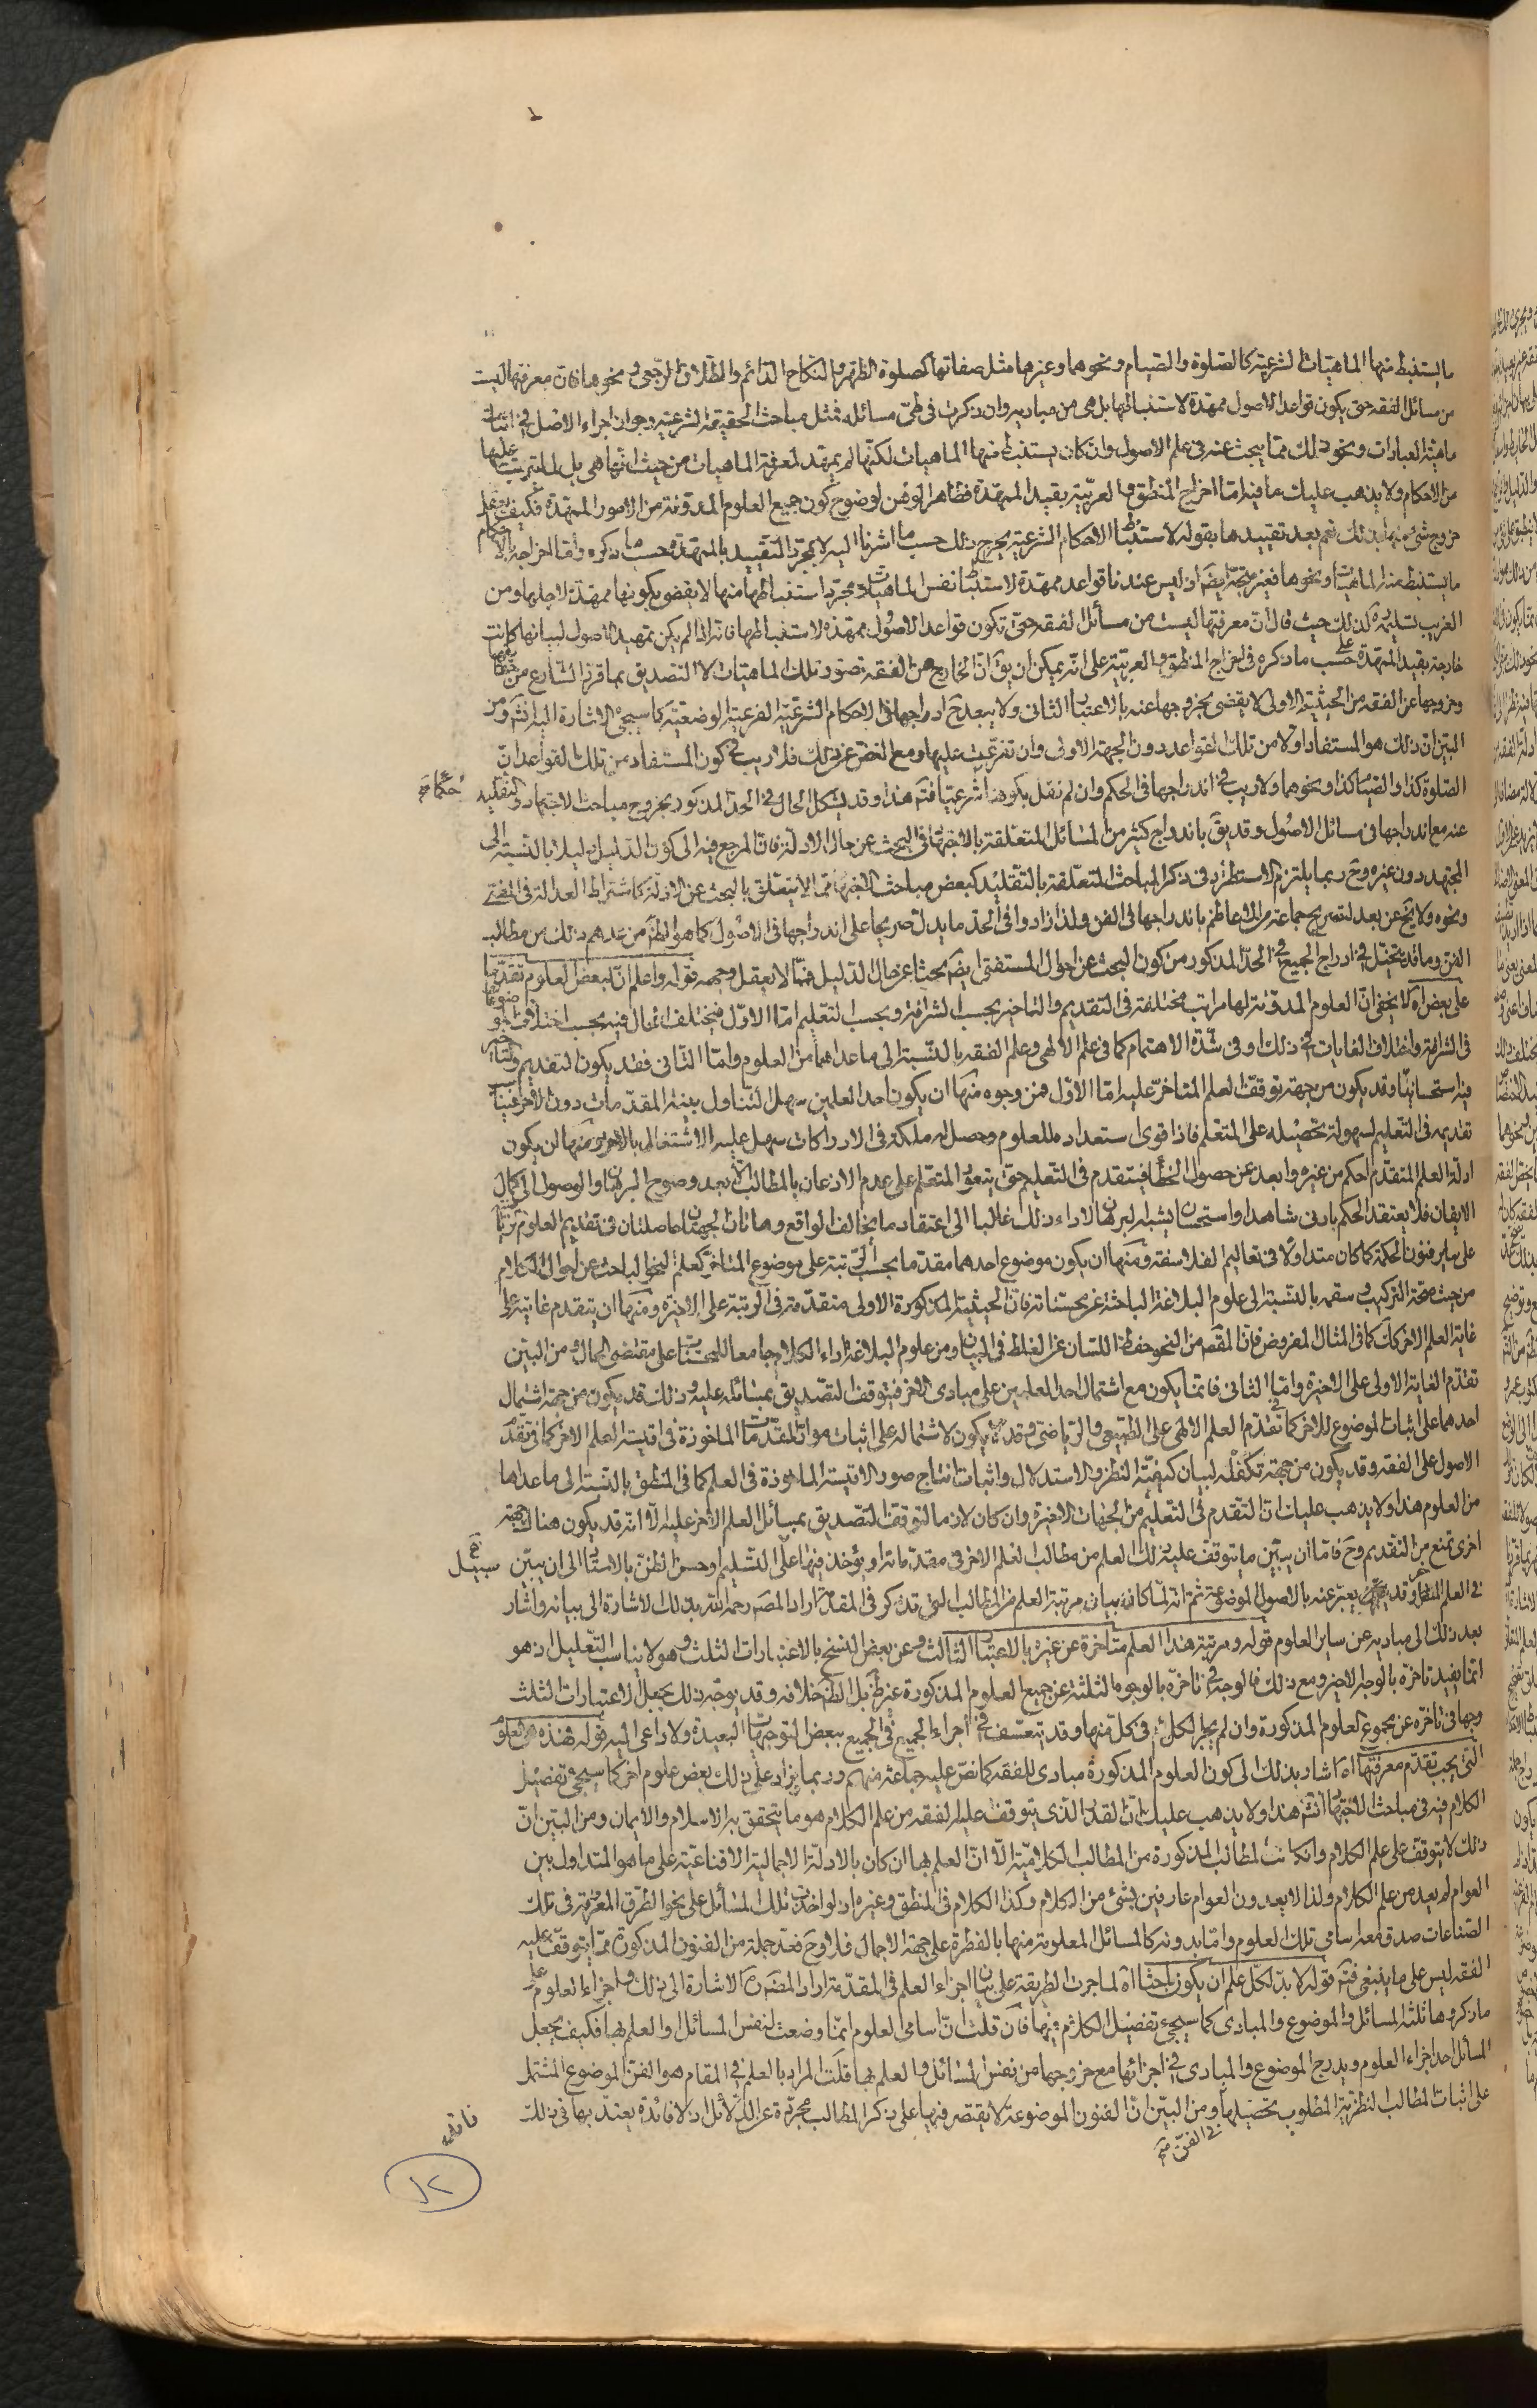 ما يستنبط منها الماهيات الشرعية كالصلوة والصيام ونحوهما وغيرهما مثل صفاتها كصلوة الظهر والنكاح الدائم والطلاق الرجعى ونحوها فان معرفتها ليست
من مسائل الفقه حتى يكون قواعد الاصول ممهدة لاستنباطها بل هى من مباديه وان ذكرت فى طىّ مسائله فمثل مباحث الحقيقة الشرعية وجواز اجراء الاصل فى اثبات
ماهية العبادات ونحو ذلك مما يبحث عنه فى علم الاصول وان كان يستنبط منها الماهيات لكنها لم يمهد لمعرفة الماهيات من حيث انها هى بل لما يترتب عليها
من الاحكام ولا يذهب عليك ما فيه اما اخراج المنطق والعربية بقيد الممهدة فظاهر الوهن لوضوح كون جميع العلوم المدونة من الامور الممهدة فكيف يعقل
خروج شئ منها بذلك نعم بعد تقييدها بقوله لاستنباط الاحكام الشرعية يخرج ذلك حسب ما اشرنا اليه لا بمجرد التقييد بالممهدة حسب ما ذكره واما اخراجه لاحكام
ما يستنبط منه الماهيات ونحوها فغير متجه ايضا اذ ليس عندنا قواعد ممهدة لاستنباط نفس الماهيات ومجرد استنباطها منها لا يقضى بكونها ممهدة لاجلها ومن
الغريب تسليمه لذلك حيث قال ان معرفتها ليست من مسائل الفقه حتى تكون قواعد الاصول ممهدة لاستنباطها فانه اذا لم يكن تمهيد الاصول لبيانها كانت
خارجة بقيد الممهدة على حسب ما ذكره فى اخراج المنطق والعربية على انه يمكن ان يق ان الخارج عن الفقه تصور تلك الماهيات لا التصديق بما قرره الشارع من حقايقها
وخروجها عن الفقه من الحيثية الاولى لا يقضى بخروجها عنه بالاعتبار الثانى ولا يبعد ح ادراجها فى الاحكام الشرعية الفرعية الوضعية كما سيجئ الاشارة اليه انش ومن
البين ان ذلك هو المستفاد اولا من تلك القواعد دون الجهة الاولى وان تفرعت عليها ومع الغض عن ذلك فلا ريب فى كون المستفاد من تلك القواعد ان
الصلوة كذا والصيام كذا ونحوهما ولا ريب فى اندراجها فى الحكم وان لم نقل بكونه شرعيا فتم هذا وقد يشكل الحال فى الحد المذكور بخروج مباحث الاجتهاد والتقليد
حكما صح
عنه مع اندراجها فى مسائل الاصول وقد يق باندراج كثير من المسائل المتعلقة بالاجتهاد فى البحث عن حال الادلة فان المرجع فيه الى كون الدليل دليلا بالنسبة الى
المجتهد دون غيره وح ربما يلتزم الاستطراد فى ذكر المباحث المتعلقة بالتقليد كبعض مباحث الاجتهاد مما لا يتعلق بالبحث عن الادلة كاشتراط العدالة فى المفتى
ونحوه ولا يخ عن بعد لتصريح جماعة من الاعاظم باندراجها فى الفن ولذا زادوا فى الحد ما يدل صريحا على اندراجها فى الاصول كما هو الظ من عدهم ذلك من مطالب
الفن وما قد يتخيل فى ادراج الجميع فى الحد المذكور من كون البحث عن احوال المستفتى ايضا بحثا عن حال الدليل فمما لا يعقل وجهه قوله واعلم ان لبعض العلوم تقدما
على بعض اه لا يخفى ان العلوم المدونة لها مراتب مختلفة فى التقديم والتاخير بحسب الشرافة وبحسب التعليم اما الاول فيختلف الحال فيه بحسب اختلاف الموضوعات
فى الشرافة واختلاف الغايات فى ذلك او فى شدة الاهتمام كما فى علم الالهى وعلم الفقه بالنسبة الى ما عداهما من العلوم واما الثانى فقد يكون التقديم والتاخير
فيه استحسانيا وقد يكون من جهة توقف العلم المتاخر عليه اما الاول فمن وجوه منها ان يكون احد العلمين سهل التناول بينة المقدمات دون الاخر فينا سب
تقديمه فى التعليم لسهولة تحصيله على المتعلم فاذا قوى استعداده للعلوم وحصل له ملكة فى الادراكات سهل عليه الاشتغال بالاخر ومنها ان يكون
ادلة العلم المتقدم احكم من غيره وابعد عن حصول الخطا فيتقدم فى التعليم حتى يتعود المتعلم على عدم الاذعان بالمطالب الا بعد وضوح البرهان والوصول الى كمال
الايقان فلا يعتقد الحكم بادنى شاهد او استحسان يشبه البرهان لاداء ذلك غالبا الى اعتقاد ما يخالف الواقع وهاتان الجهتان حاصلتان فى تقديم العلوم الرياضية
على ساير فنون الحكمة كما كان متداولا فى تعاليم الفلاسفة ومنها ان يكون موضوع احدهما مقدما بحسب الرتبة على موضوع المتاخر كعلم النحو الباحث عن احوال الكلام
من حيث صحة التركيب وسقمه بالنسبة الى علوم البلاغة الباحثة عن محسناته فان الحيثية المذكورة الاولى متقدمة فى الرتبة على الاخيرة ومنها ان يتقدم غايته على
غاية العلم الاخر كك كما فى المثال المفروض فان المقصد من النحو حفظ اللسان عن الغلط فى البيان ومن علوم البلاغة اداء الكلام جامعا للمحسنات على مقتضى الحال ومن البين
تقدم الغاية الاولى على الاخيرة واما الثانى فانما يكون مع اشتمال احد العلمين على مبادى الاخر فيتوقف التصديق بمسائله عليه وذلك قد يكون من جهة اشتمال
احدهما على اثبات الموضوع للاخر كما فى تقدم العلم الالهى على الطبيعى والرياضى وقد يكون لاشتماله على اثبات مواد المقدمات الماخوذة فى اقيسة العلم الاخر كما فى تقدم
الاصول على الفقه وقد يكون من جهة تكفله لبيان كيفية النظر والاستدلال واثبات انتاج صور الاقيسة الماخوذة فى العلم كما فى المنطق بالنسبة الى ما عداها
من العلوم هذا ولا يذهب عليك ان التقدم فى التعليم من الجهات الاخيرة وان كان لازما لتوقف التصديق بمسائل العلم الاخر عليه الا انه قد يكون هناك جهة
اخرى تمنع من التقديم وح فاما ان يبين ما يتوقف عليه ذلك العلم من مطالب العلم الاخر فى مقدماته او يؤخذ فيها على سبيل التسليم او حسن الظن بالاستاد الى ان يبين
فى العلم المتاخر وقد يعبر عنه بالاصول الموضوعة ثم انه لما كان بيان مرتبة العلم من المطالب التى تذكر فى المقدمة اراد المصه رحمه الله بذلك الاشارة الى بيانه واشار
بعد ذلك الى مباديه عن ساير العلوم قوله ومرتبة هذا العلم متاخرة عن غيره بالاعتبار الثالث وعن بعض النسخ بالاعتبارات الثلث وهو لا يناسب التعليل اذ هو
انما يفيد تاخره بالوجه الاخير ومع ذلك فالوجه فى تاخره بالوجوه الثلثة عن جميع العلوم المذكورة غير ظ بل الظ خلافه وقد يوجه ذلك بجعل الاعتبارات الثلث
وجها فى تاخره عن مجموع العلوم المذكورة وان لم يجر الكل فى كل منها وقد يتعسف فى اجراء الجميع فى الجميع ببعض التوجيهات البعيدة ولا داعى اليه قوله فهذه هى العلوم
التى يجب تقدم معرفتها اه اشار بذلك الى كون العلوم المذكورة مبادى للفقه كما نص عليه جماعة منهم وربما يزاد على ذلك بعض علوم اخر كما سيجئ تفصيل
الكلام فيه فى مباحث الاجتهاد انش هذا ولا يذهب عليك ان القدر الذى يتوقف عليه الفقه من علم الكلام هو ما يتحقق به الاسلام والايمان ومن البين ان
ذلك لا يتوقف على علم الكلام وان كانت المطالب المذكورة من المطالب الكلامية الا ان العلم بها ان كان بالادلة الاجمالية الاقناعية على ما هو المتداول بين
العوام لم يعد من علم الكلام ولذا لا يعدون العوام عارفين بشئ من الكلام وكذا الكلام فى المنطق وغيره اذ لو اخذت تلك المسائل على نحو الطرق المعروفة فى تلك
الصناعات صدق معه اسامى تلك العلوم واما بدونه كالمسائل المعلومة منها بالفطرة على جهة الاجمال فلا وح فعد جملة من الفنون المذكورة مما يتوقف عليه
الفقه ليس على ما ينبغى فتم قوله لا بد لكل علم ان يكون باحثا اه لما جرت الطريقة على بيان اجزاء العلم فى المقدمة اراد المصه ره الاشارة الى ذلك واجزاء العلوم على
ما ذكروها ثلثة المسائل والموضوع والمبادى كما سيجئ تفصيل الكلام فيها فان قلت ان اسامى العلوم انما وضعت لنفس المسائل او العلم بها فكيف يجعل
المسائل احد اجزاء العلوم ويدرج الموضوع والمبادى فى اجزائها مع خروجها من نفس المسائل والعلم بها قلت المراد بالعلم فى المقام هو الفن الموضوع المشتمل
على اثبات المطالب النظرية المطلوب تحصيلها ومن البين ان الفنون الموضوعة لا يقتصر فيها على ذكر المطالب مجردة عن الدلائل اذ لا فائدة يعتد بها فى ذلك
فى الفن صح
١٢